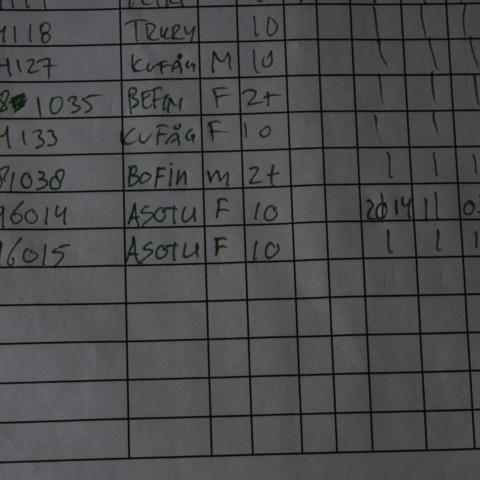 1118 TRKRY 10 | | |
4127 KUFÅG M 10 | | |
8 1035 BEFIN F 2+ | | |
4133 KUFÅG F 10 | |
81038 BOFIN M 2+ | | |
96014 ASOTU F 10 2014 11 0
96015 ASOTU F 10 | | |